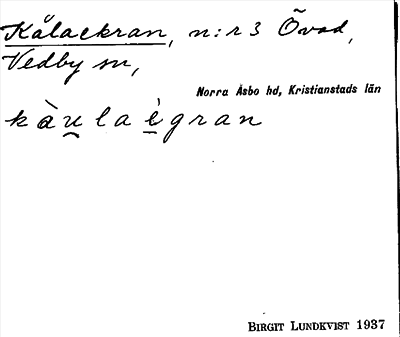 Kålackran, n:r 3 Övad,
Vedby sn,
Norra Åsbo hd, Kristianstads län
kàu̯la è̱gran
BIRGIT LUNDKVIST 1937